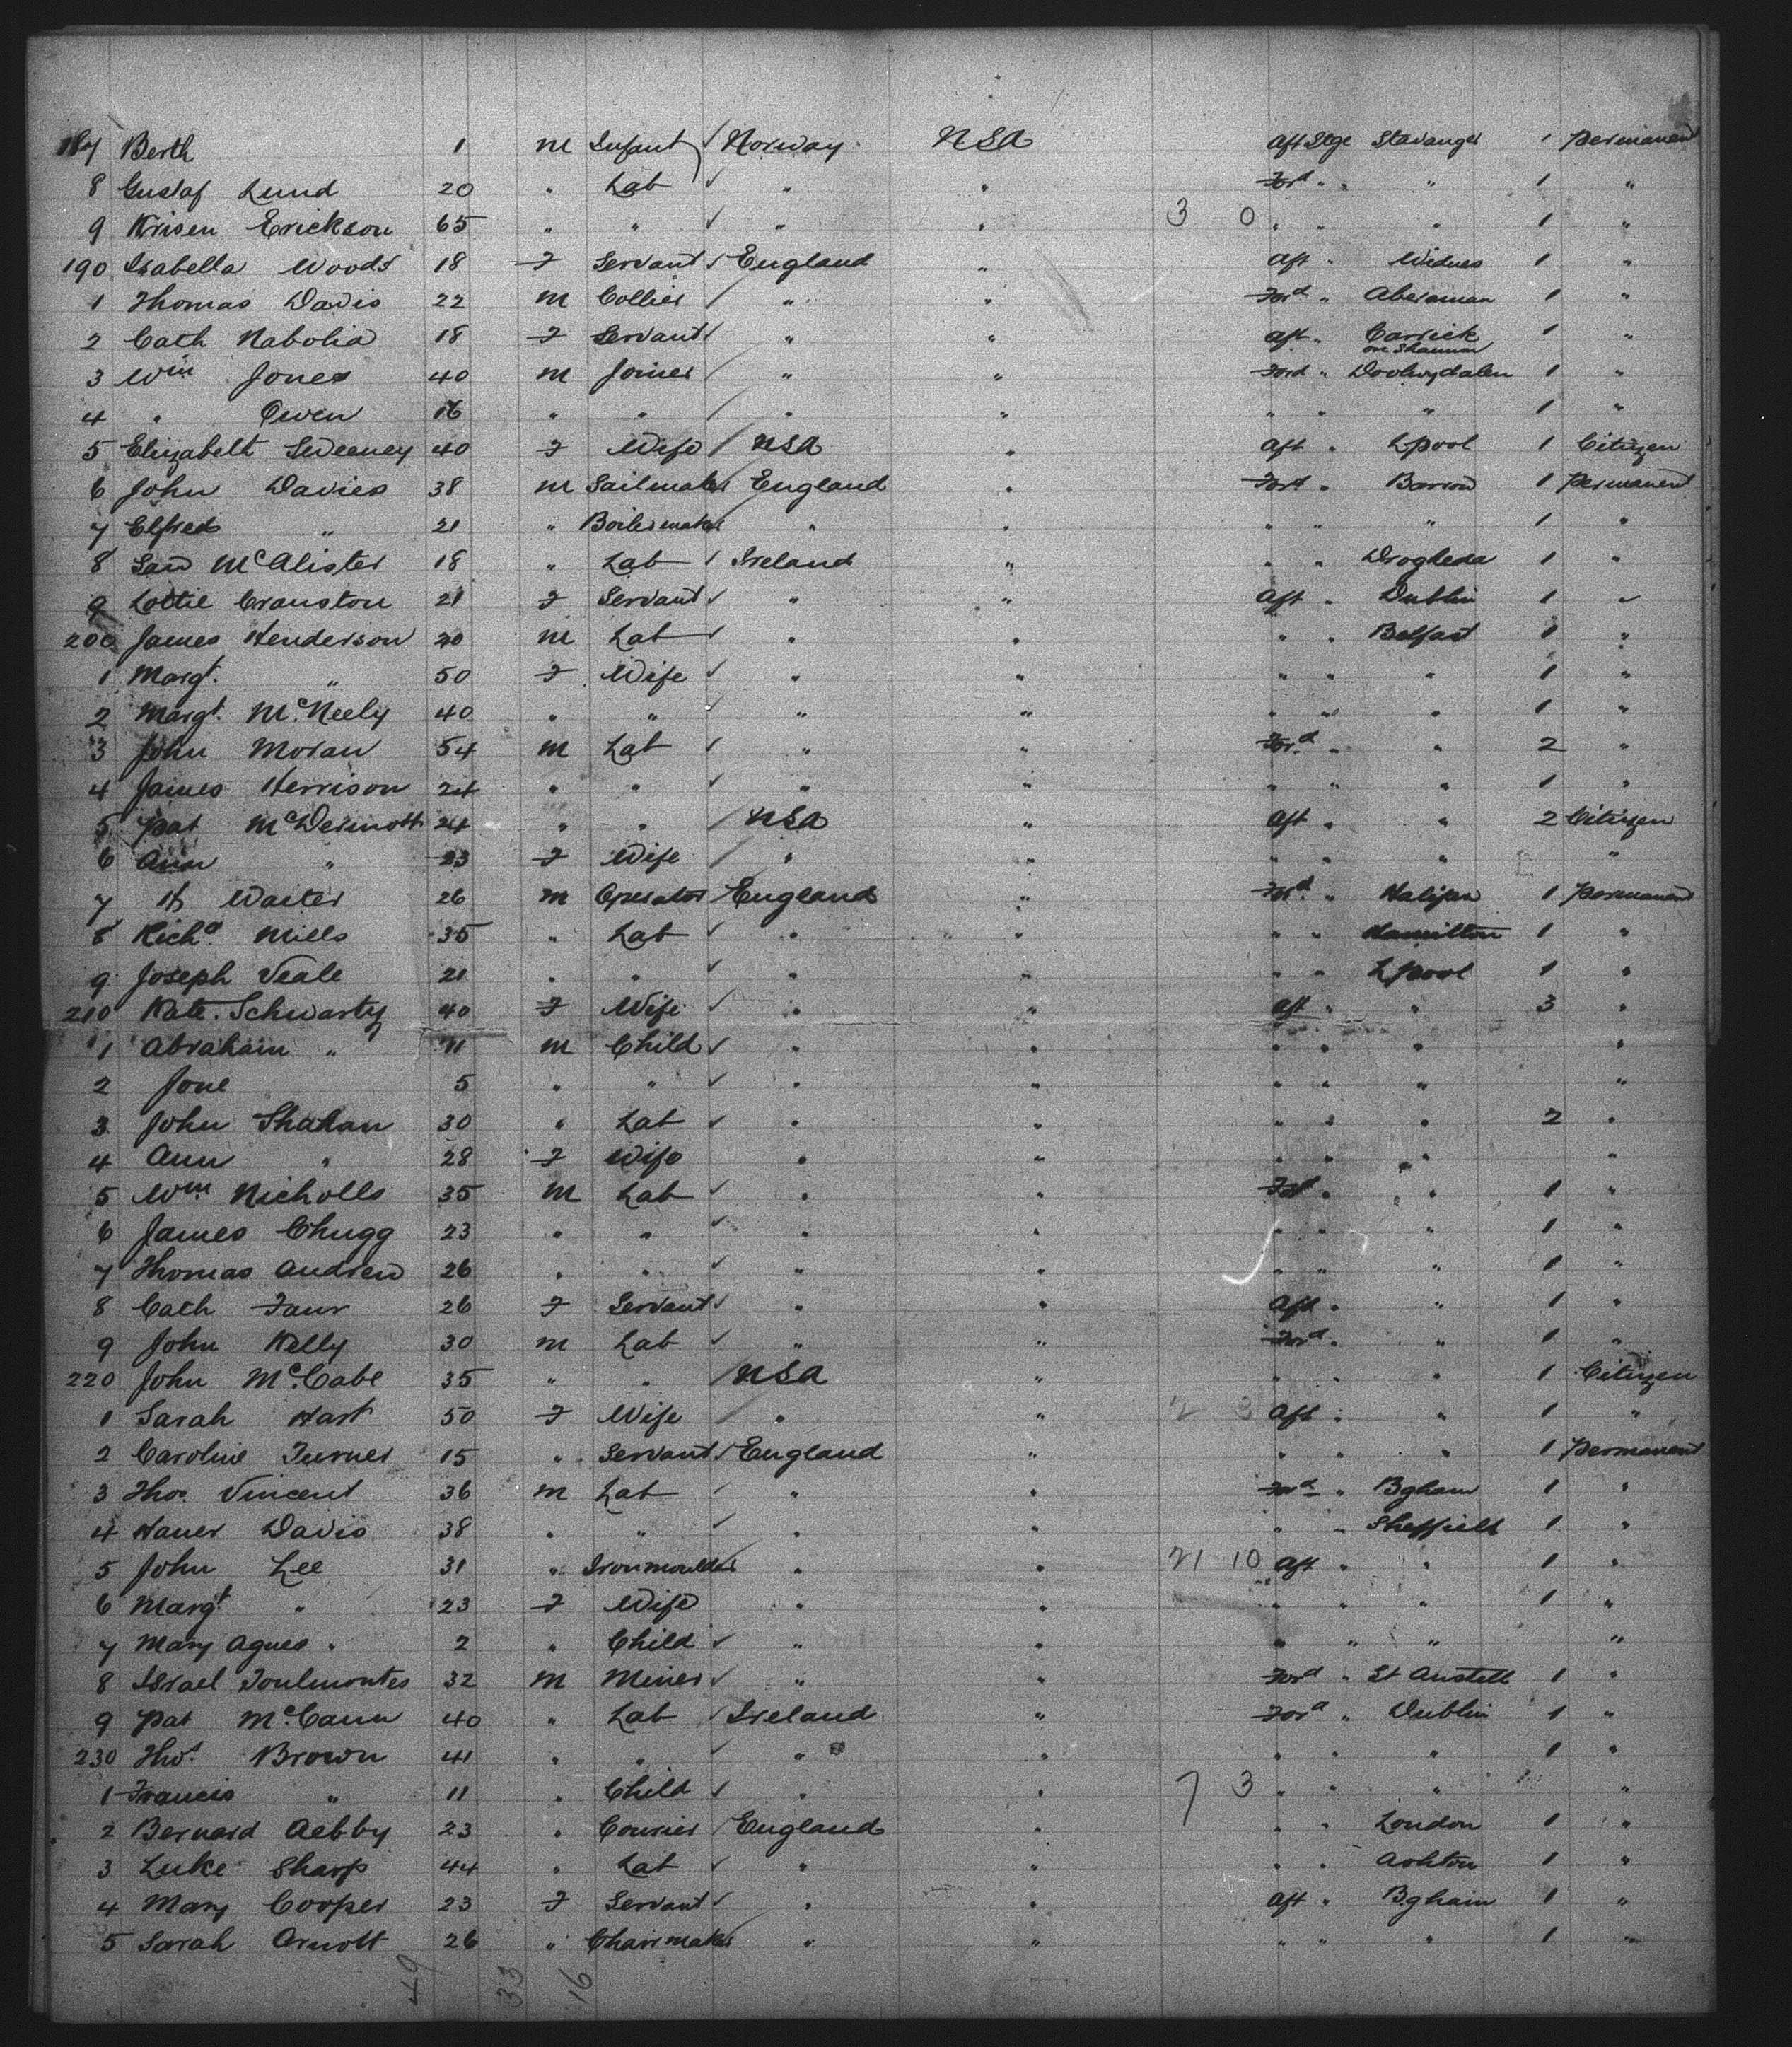 187 Berth 1 M Infant ✓ Norway USA Aft Stge Stavanger 1 Permanent
8 Gustaf Lund 20 " Lab ✓ " " Ford " " " 1 "
9 Krisen Erickson 65 " " ✓ " " 3 0 " " " 1 "
190 Isabella Woods 18 F Servant ✓ England " Aft " Widnes 1 "
1 Thomas Davis 22 M Collier / " " Ford " Aberaman 1 "
2 Cath Nabolia 18 F Servant ✓ " " Aft " Carrick on Shannon 1 "
3 Wm Jones 40 M Joiner / " " Ford " Doolwydalen 1 "
4 " Owen 16 " " / " " " " " 1 "
5 Elizabeth Sweeney 40 F Wife / USA " Aft " Lpool 1 Citizen
6 John Davies 38 M Sailmaker England " Ford " Barrow 1 Permanent
7 Elfred " 21 " Boilermaker " " " " " 1 "
8 McAlister 18 " Lab / Ireland " " " Drogheda 1 "
9 Lottie Cranston 21 F Servant ✓ " " Aft " Dublin 1 "
200 James Henderson 20 M Lab ✓ " " " " Belfast 1 "
1 Margt. " 50 F Wife ✓ " " " " " 1 "
2 Margt. McNeely 40 " " ✓ " " " " " 1 "
3 John Moran 54 M Lab ✓ " " Ford " " 2 "
4 James Herrison 24 " " ✓ " " " " " 1 "
5 Pat McDermott 24 " " / USA " Aft " " 2 Citizen
6 Ann " 23 F Wife / " " " " " "
7 H Waiter 26 M Operator England " Ford " Halifax 1 Permanent
8 Richd. Mills 35 " Lab ✓ " " " " Hamilton 1 "
9 Joseph Veale 21 " " ✓ " " " " Lpool 1 "
210 Kate Schwartz 40 F Wife ✓ " " Aft " " 3 "
1 Abraham " 11 M Child ✓ " " " " " "
2 Jone 5 " " ✓ " " " " " "
3 John Shahan 30 " Lab ✓ " " " " " 2 "
4 Ann " 28 F Wife " " " " " "
5 Wm Nicholls 35 M Lab ✓ " " Ford " " 1 "
6 James Chugg 23 " " ✓ " " " " " 1 "
7 Thomas Andrew 26 " " ✓ " " " " " 1 "
8 Cath Faur 26 F Servant ✓ " " Aft " " 1 "
9 John Kelly 30 M Lab ✓ " " Ford " " 1 "
220 John McCabe 35 " " / USA " " " " 1 Citizen
1 Sarah Hart 50 F Wife / " " 2 3 Aft " " 1 "
2 Caroline Turner 15 " Servant ✓ England " " " " 1 Permanent
3 Thos. Vincent 36 M Lab ✓ " " Ford " Bgham 1 "
4 Haner Davis 38 " " ✓ " " " " Sheffield 1 "
5 John Lee 31 " Ironmoulder " " 21 10 Aft " " 1 "
6 Margt " 23 F Wife " " " " " 1 "
7 Mary Agnes " 2 " Child ✓ " " " " " "
8 Israel Toulmontes 32 M Miner ✓ " " Ford " St Austell 1 "
9 Pat McCann 40 " Lab / Ireland " Ford " Dublin 1 "
230 Thos. Brown 41 " " ✓ " " " " " 1 "
1 Francis " 11 " Child ✓ " " 7 3 " " " "
2 Bernard Aebby 23 " Courier / England " " " London 1 "
3 Luke Sharp 44 " Lab ✓ " " " " Ashton 1 "
4 Mary Cooper 23 F Servant ✓ " " Aft " Bgham 1 "
5 Sarah Arnott 26 " Chairmaker " " " " " 1 "
49 33 16